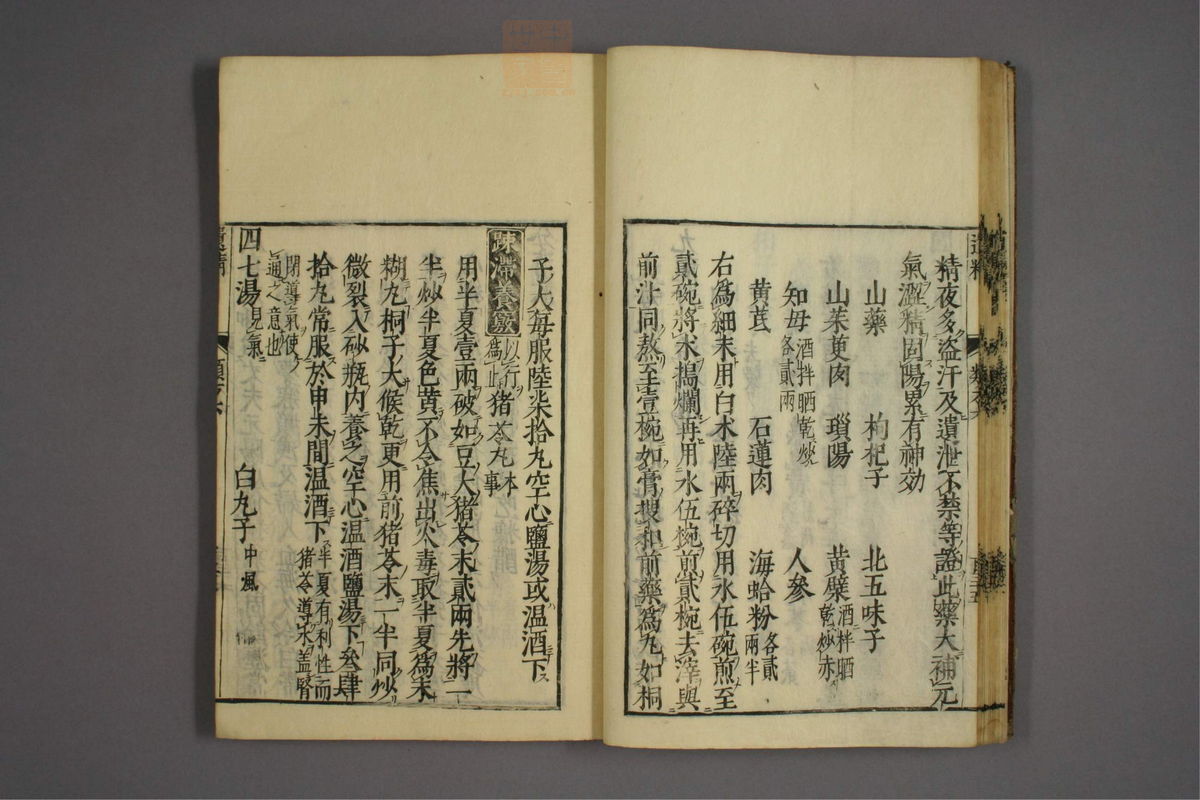 精夜多盗汗及遺泄不禁等證此藥大補元
氣澀精固陽累有神効
山藥 枸杞子 北五味子
山茱萸肉 瑣陽 黄蘗酒拌晒乾炒赤
知母酒拌晒乾炒各貳兩 人參
黄芪 石蓮肉 海蛤粉各貳兩半
右爲細末用白朮陸兩碎切用水伍碗煎至
貳碗將朮搗爛再用水伍椀煎貳椀去滓與
前汁同熬至壹椀如膏搜和前藥爲丸如桐
子大每服陸柒拾丸空心鹽湯或温酒下
疎滯養竅
以行爲此猪苓丸本事
用半夏壹兩破如豆大猪苓末貳兩先將一
半炒半夏色黄不令焦出火毒取半夏爲末
糊丸桐子大候乾更用前猪苓末一半同炒
微裂入砂瓶内養之空心温酒鹽湯下叁肆
拾丸常服於申未間温酒下半夏有利性而猪苓導水盖腎
閉導氣使通之意也
四七湯見氣 白丸子中風